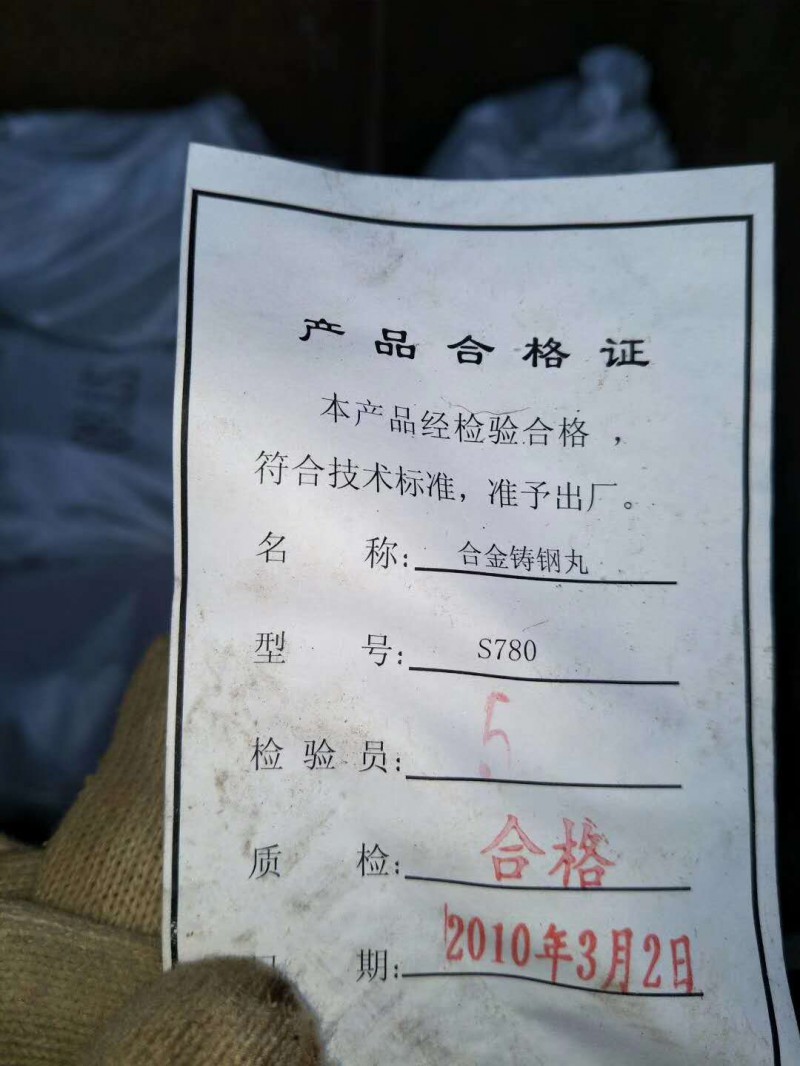 产品合格证
本产品经检验合格，
符合技术标准，准予出厂。
名 称：合金铸钢丸
型 号：S780
检 验 员：5
质 检：合格
期：2010年3月2日